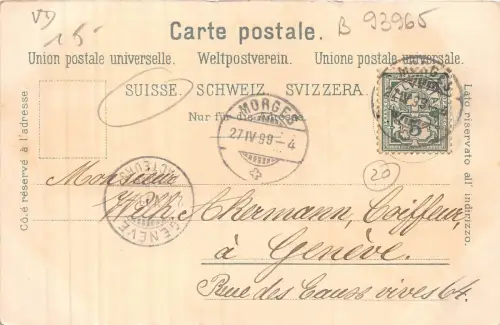 VD
15
B 93965
Carte postale.
Union postale universelle. Weltpostverein. Unione postale universale.
SUISSE. SCHWEIZ. SVIZZERA.
Nur für die Adresse.
Côté réservé à l'adresse
Lato riservato all' indirizzo.
MORGES
27 IV 99 - 4
MORGES
IV 99
5
20
GENÈVE
FACTEURS
Monsieur
Ackermann, Coiffeur,
à Genève.
Rue des Eaux vives 64.